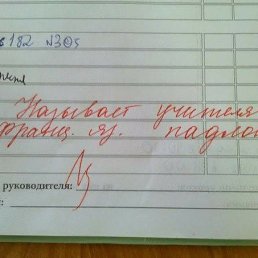 182 №305
Называет учителя
франц. яз. падлой
руководителя: